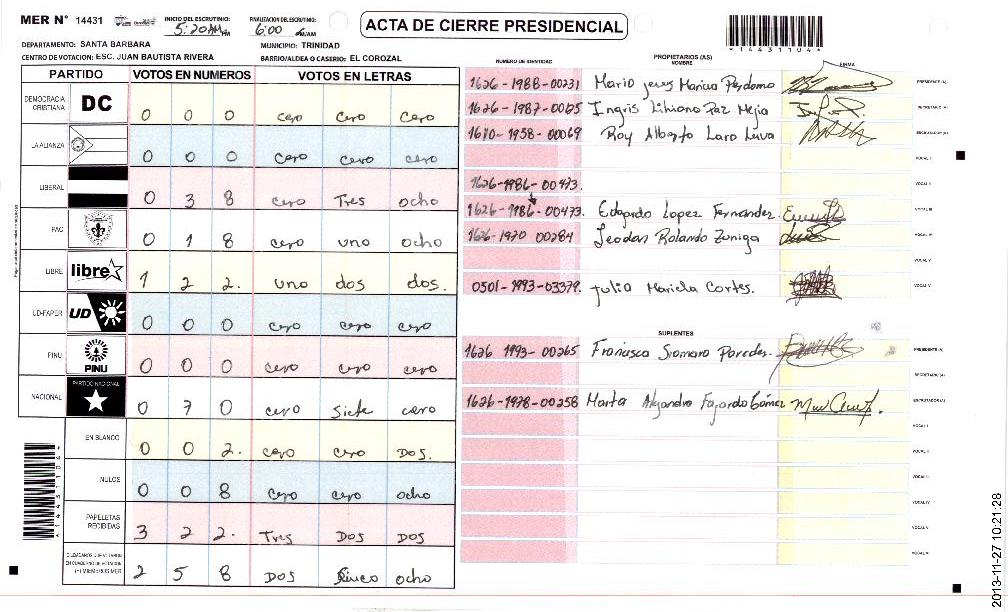 MER N° 14431
INICIO DEL ESCRUTINIO: 5:20 AM
FINALIZACION DEL ESCRUTINIO: 6:00
ACTA DE CIERRE PRESIDENCIAL
14431104
DEPARTAMENTO: SANTA BARBARA MUNICIPIO: TRINIDAD
CENTRO DE VOTACION: ESC. JUAN BAUTISTA RIVERA BARRIO/ALDEA O CASERIO: EL COROZAL
PARTIDO VOTOS EN NUMEROS VOTOS EN LETRAS
DEMOCRACIA CRISTIANA DC 0 0 0 cero cero cero
LA ALIANZA 0 0 0 cero cero cero
LIBERAL 0 3 8 cero Tres ocho
PAC 0 1 8 cero uno ocho
LIBRE libre 1 2 2. uno dos dos.
UD-FAPER UD 0 0 0 cero cero cero
PINU PINU 0 0 0 cero cero cero
NACIONAL PARTIDO NACIONAL 0 7 0 cero Siete cero
EN BLANCO 0 0 2. cero cero DOS.
NULOS 0 0 8 cero cero ocho
PAPELETAS RECIBIDAS 3 2 2. Tres DOS DOS
CIUDADANOS QUE VOTARON EN CUADERNO DE VOTACION (+) MIEMBROS MER 2 5 8 DOS Cinco ocho
14431104
NUMERO DE IDENTIDAD PROPIETARIOS (AS) NOMBRE FIRMA
1626-1988-00231 Mario PRESIDENTE (A)
1626-1987-00125 Ingris Paz Mejia SECRETARIO (A)
1610-1958-00069 Roy Alberto ESCRUTADOR (A)
VOCAL I
1626-1986-00473. VOCAL II
1626-1986-00473. Edgardo Lopez Fernandez. VOCAL III
1626-1970 00284 Leodan Rolando Zuniga VOCAL IV
VOCAL V
0501-1993-03379. Julio Mariela Cortes. VOCAL V
SUPLENTES
1626 1993-00265 Francisco Paredes. PRESIDENTE (A)
SECRETARIO (A)
1626-1978-00258 Marta Alejandra Fajardo Gómez ESCRUTADOR (A)
VOCAL I
VOCAL II
VOCAL III
VOCAL IV
VOCAL V
VOCAL VI
2013-11-27 10:21:28